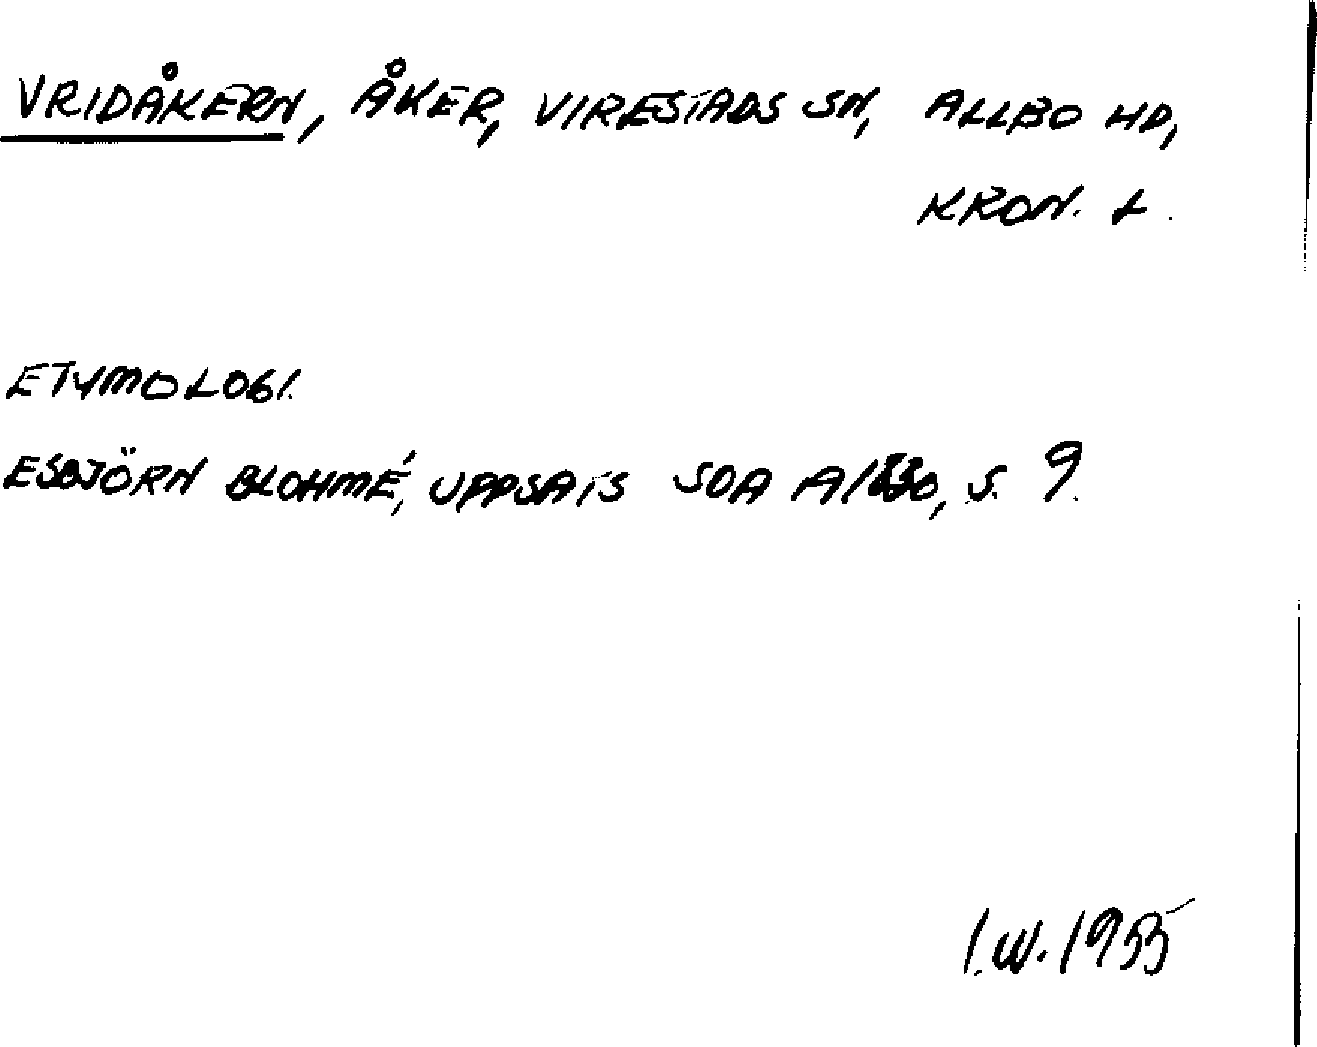 VRIDÅKERN, ÅKER, VIRESTADS SN, ALLBO HD,
KRON. L.
ETYMOLOGI.
ESBJÖRN BLOHMÉ, UPPSATS SOA s. 9.
I.W. 1955